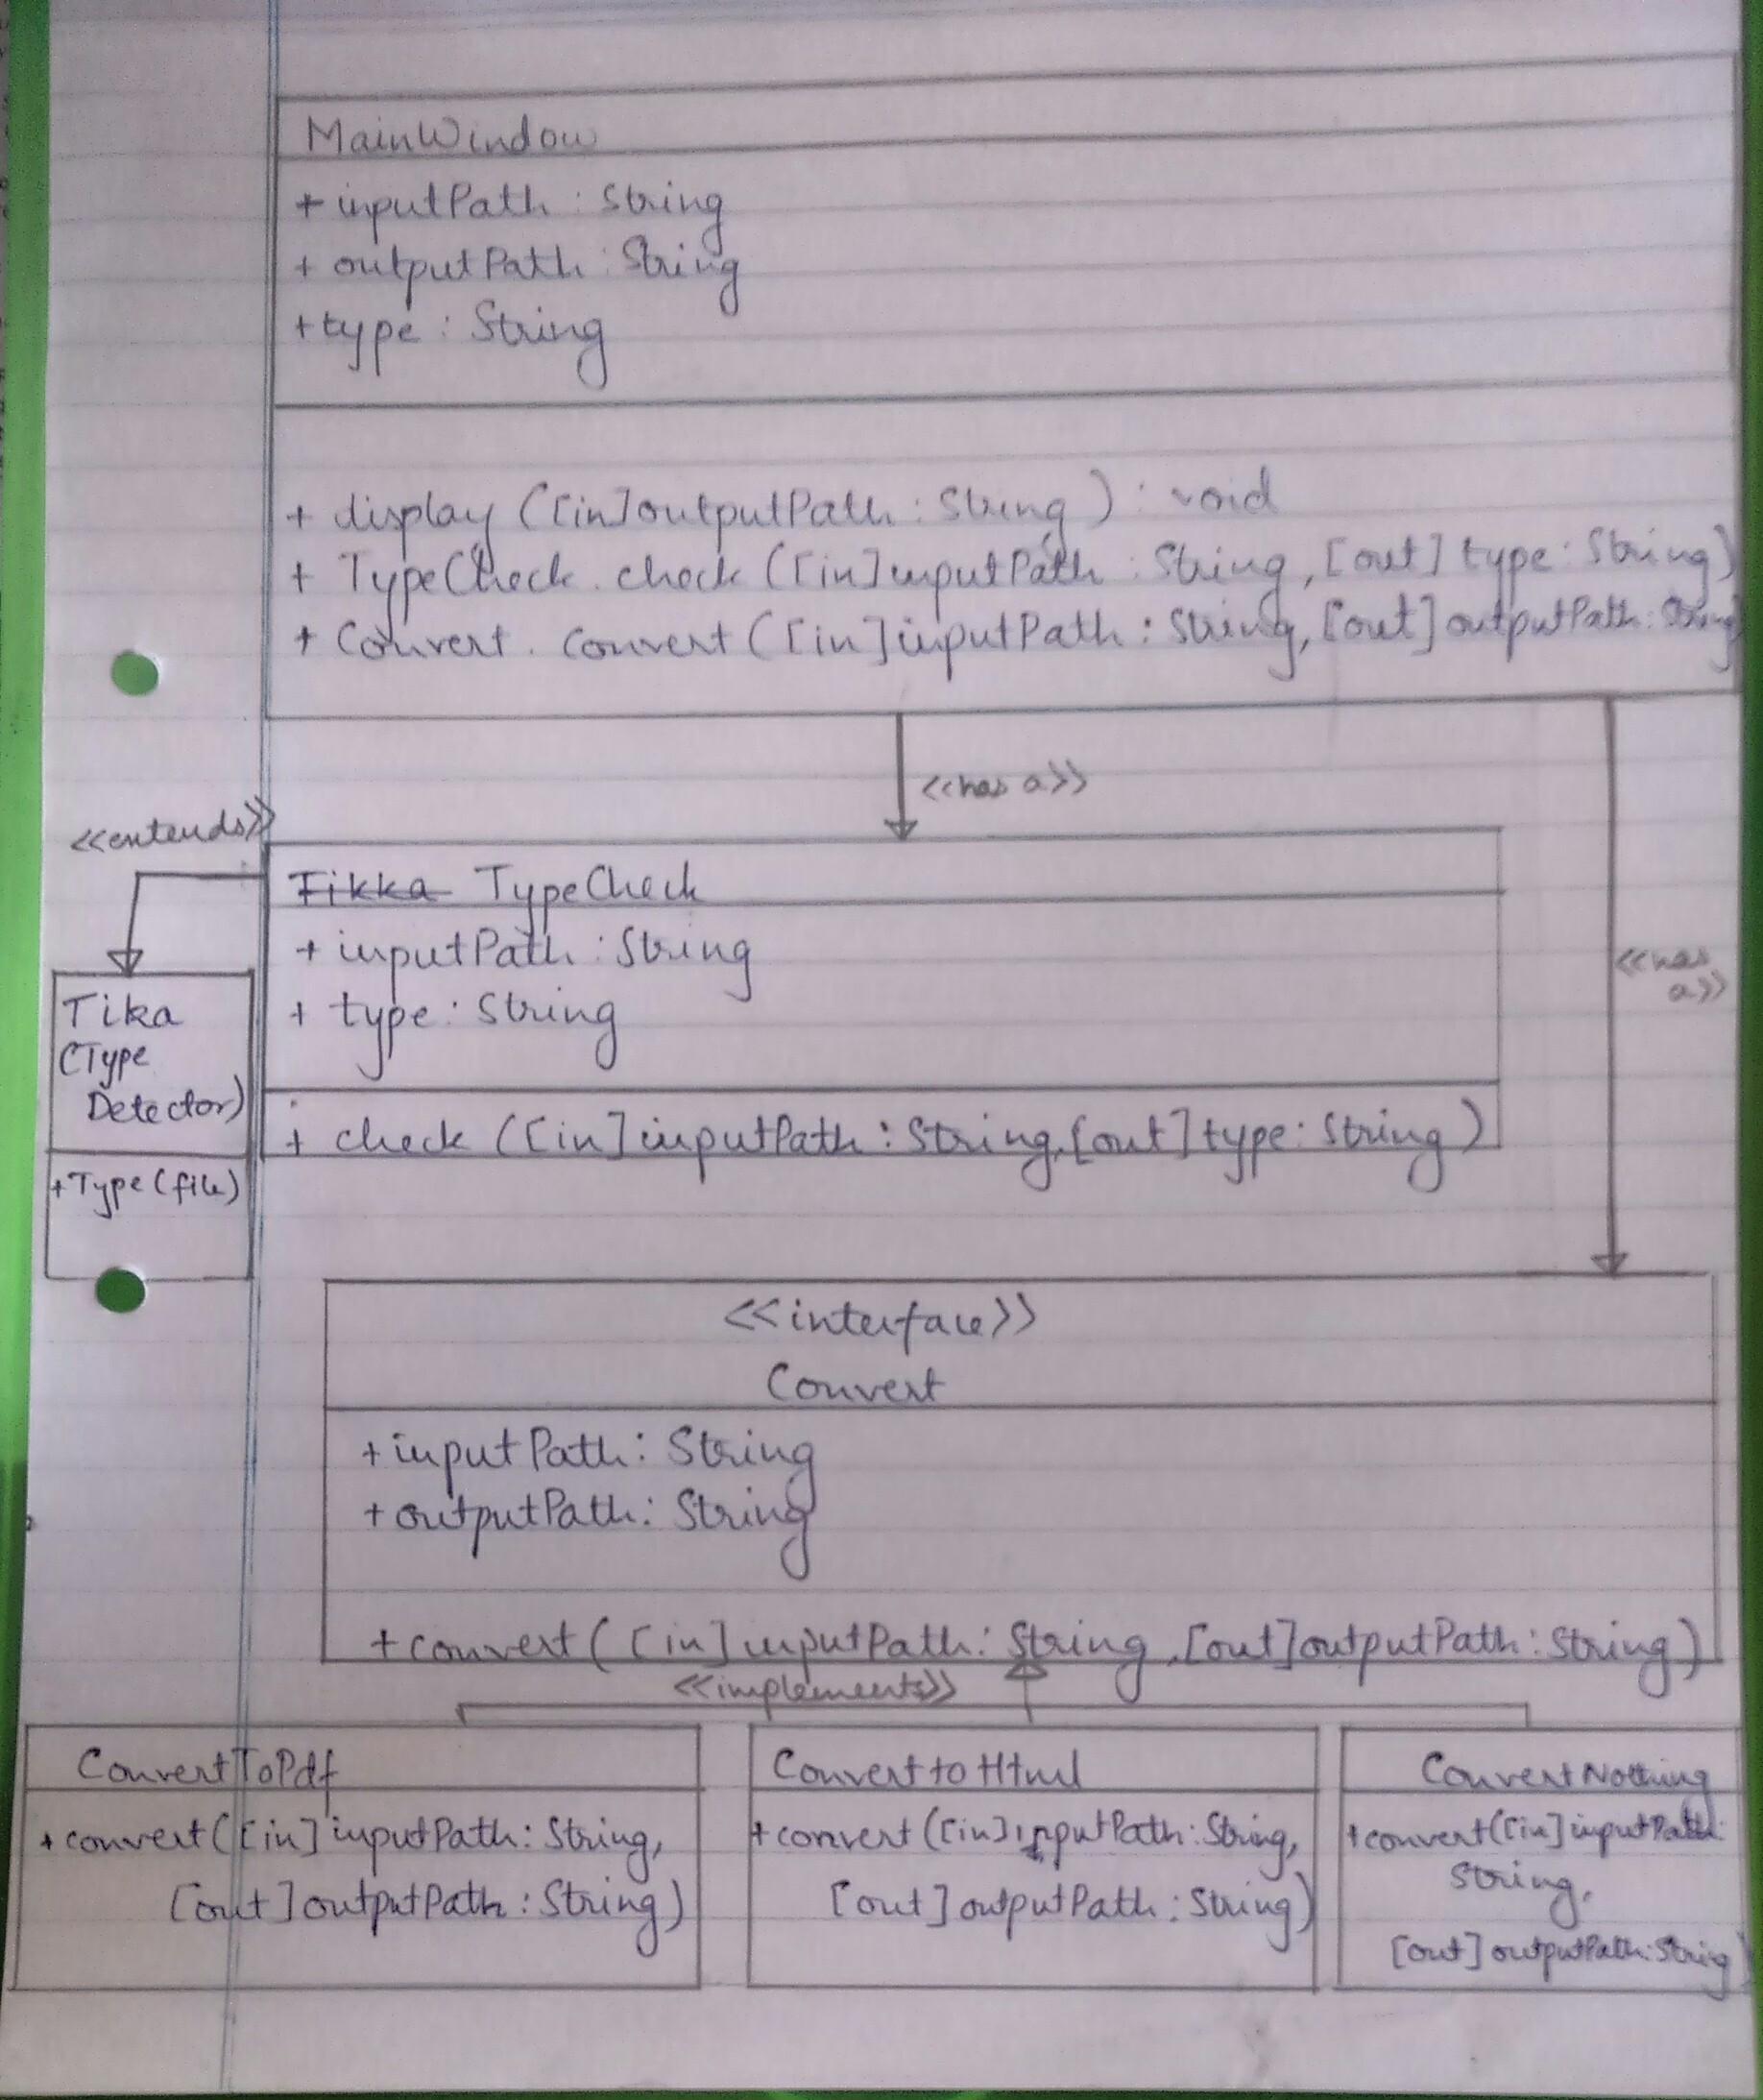 MainWindow
+ inputPath : String
+ outputPath : String
+ type : String
+ display ([in]outputPath : String) : void
+ TypeCheck.check ([in]inputPath : String, [out] type : String)
+ Convert.convert ([in]inputPath : String, [out] outputPath : String
<<has a>>
<<extends>>
Tikka TypeCheck
+ inputPath : String
+ type : String
+ check ([in]inputPath : String, [out] type : String)
<<has
a>>
Tika
(Type
Detector)
+Type(file)
<<interface>>
Convert
+ inputPath : String
+ outputPath : String
+ convert ([in] inputPath : String, [out] outputPath : String)
<<implements>>
ConvertToPdf
+ convert ([in] inputPath : String,
[out] outputPath : String)
ConverttoHtml
+ convert ([in] inputPath : String,
[out] outputPath : String)
ConvertNothing
+ convert([in] inputPath:
String,
[out] outputPath : String)